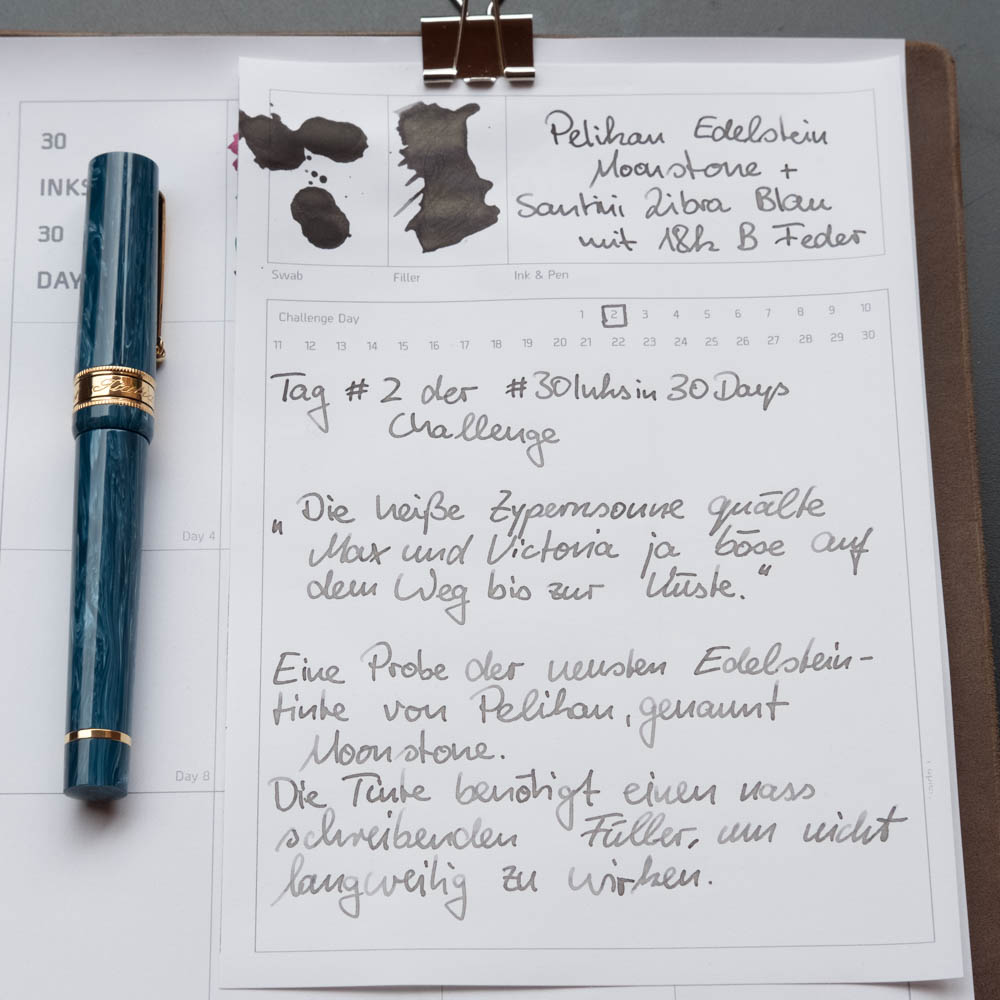 30
INKS
30
DAY
Pelikan Edelstein
Moonstone +
Santini Libra Blau
mit 18k B Feder
Swab
Filler
Ink & Pen
Challenge Day
1 2 3 4 5 6 7 8 9 10
11 12 13 14 15 16 17 18 19 20 21 22 23 24 25 26 27 28 29 30
Tag #2 der #30Inksin30Days
Challenge
„Die heiße Zypernsonne quälte
Max und Victoria ja böse auf
dem Weg bis zur Küste."
Eine Probe der neusten Edelstein-
tinte von Pelikan, genannt
Moonstone.
Die Tinte benötigt einen nass
schreibenden Füller, um nicht
langweilig zu wirken.
Day 4
Day 8